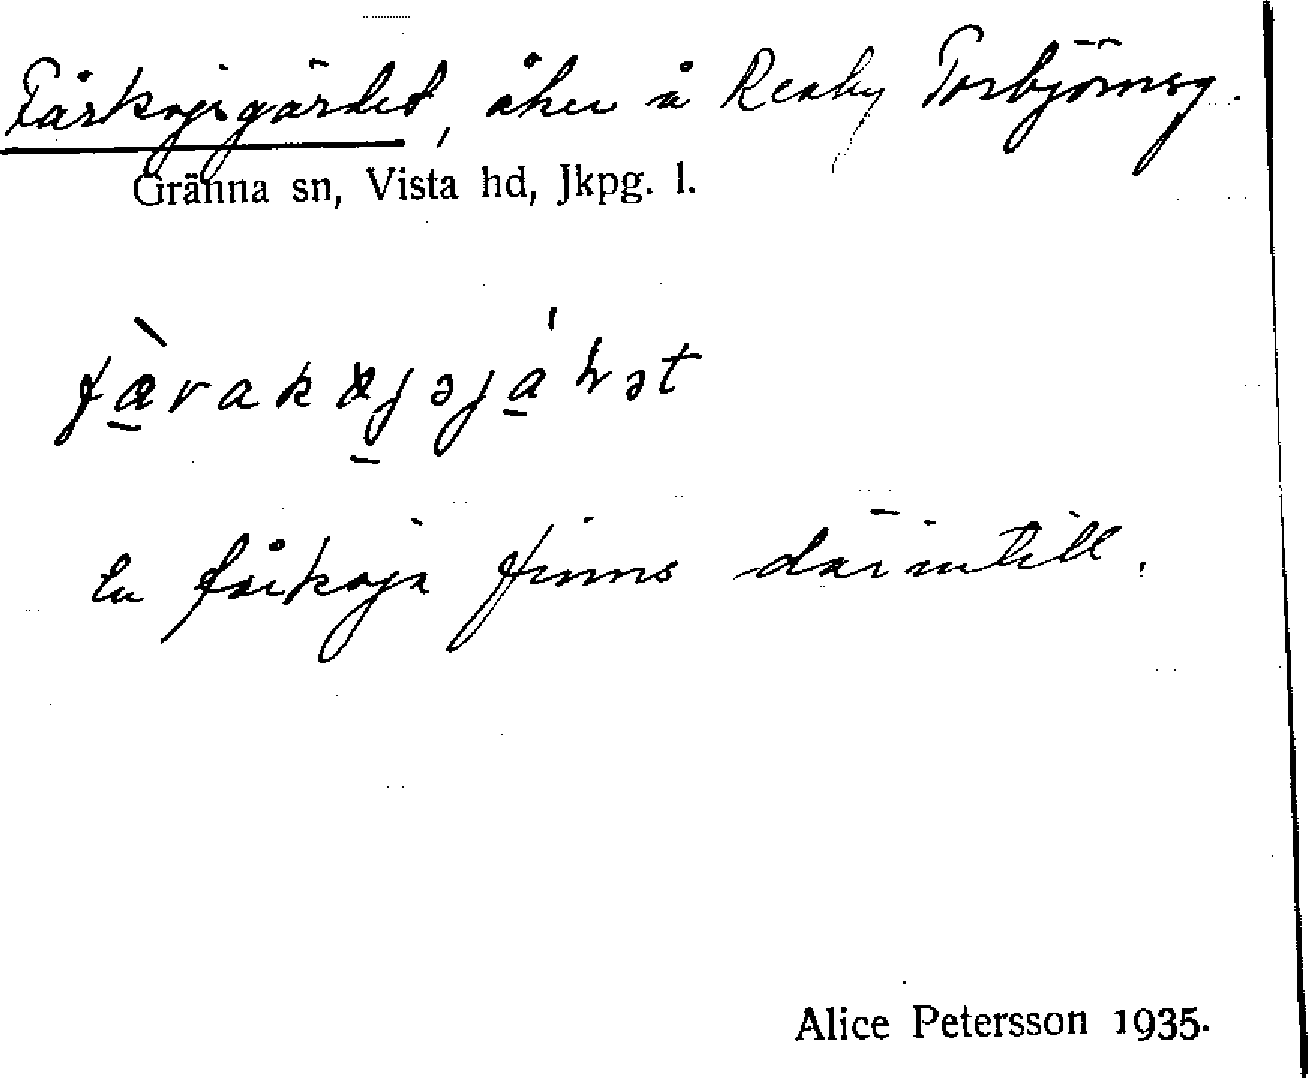 Fårkojsgärdet, åker å Reaby Torbjörnsg.
Gränna sn, Vista hd, Jkpg. l.
En fårkoja finns därintill.
Alice Petersson 1935.